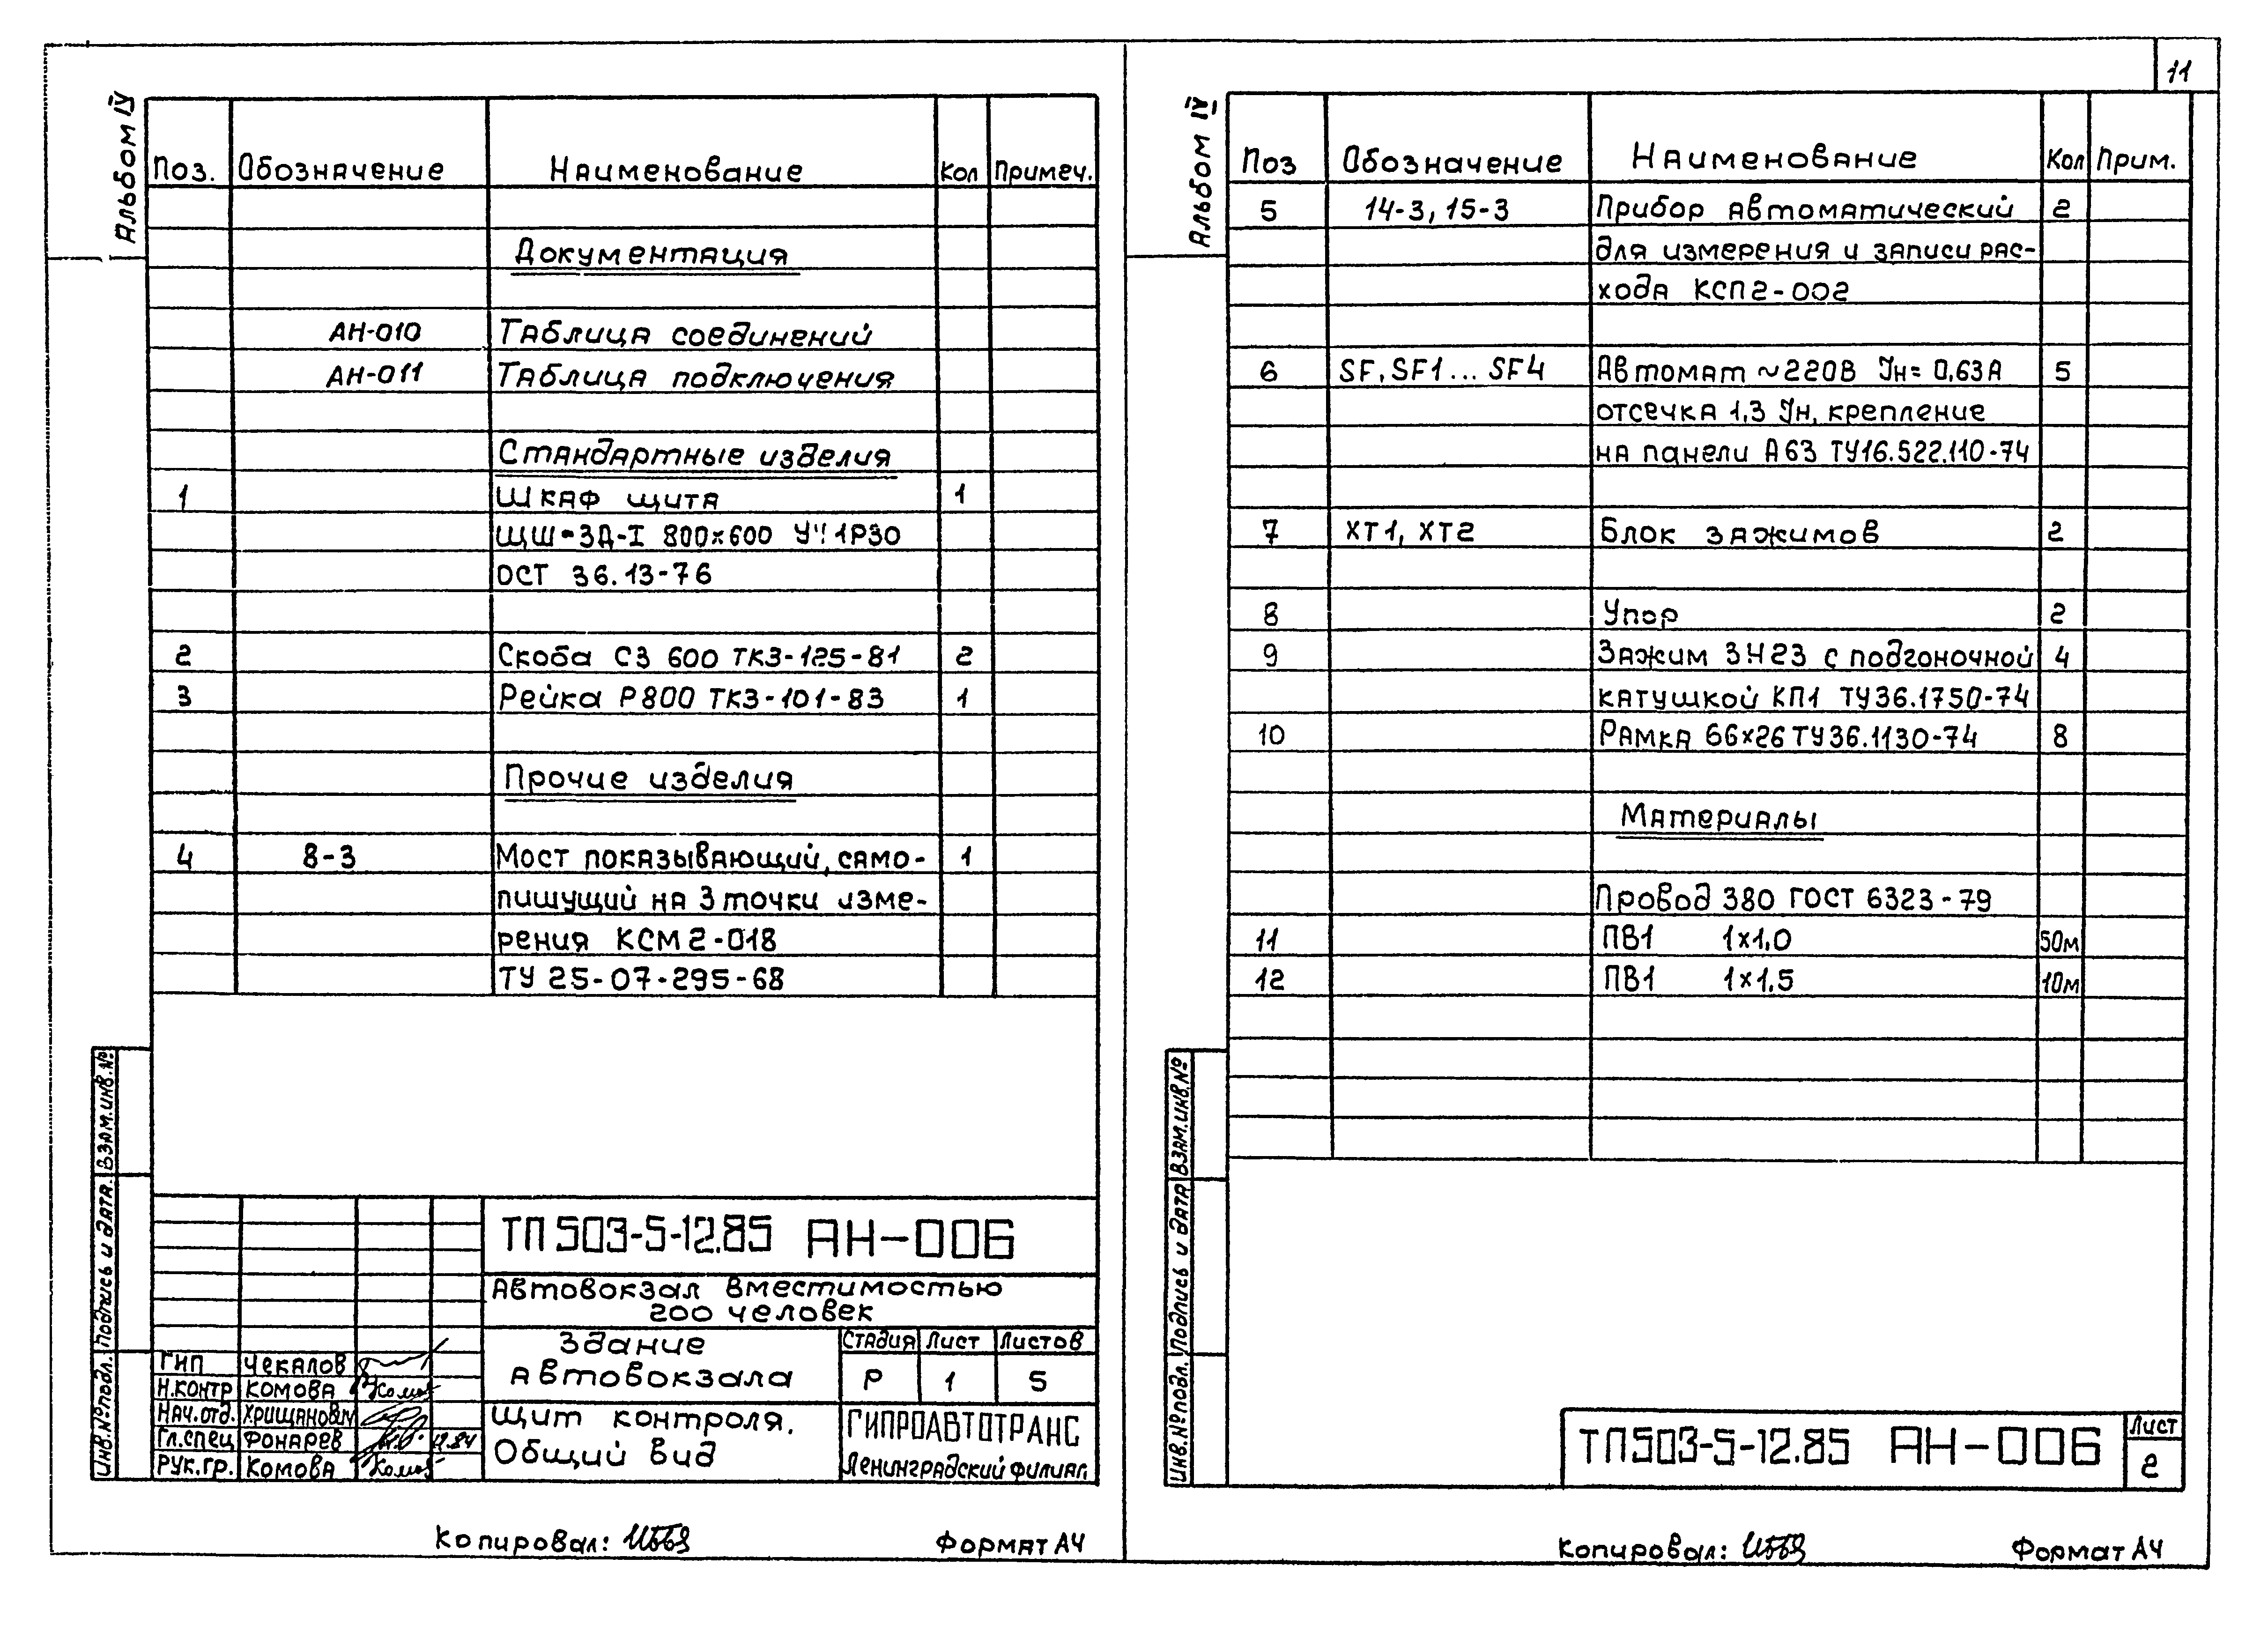 Альбом IV
Поз. Обозначение Наименование Кол Примеч.
Документация
АН-010 Таблица соединений
АН-011 Таблица подключения
Стандартные изделия
1 Шкаф щита 1
ЩШ-ЗД-I 800×600 У4 1Р30
ОСТ 36.13-76
2 Скоба СЗ 600 ТКЗ-125-81 2
3 Рейка Р800 ТКЗ-101-83 1
Прочие изделия
4 8-3 Мост показывающий, само- 1
пишущий на 3 точки изме-
рения КСМ2-018
ТУ 25-07-295-68
Взам.инв.№
Подпись и дата.
Инв.№ подл.
ТП 503-5-12.85 АН-006
Автовокзал вместимостью
200 человек
Здание
автовокзала
Стадия Лист Листов
Р 1 5
ГИП Чекалов
Н.контр Комова
Нач.отд. Хрищанович
Гл.спец Фонарев 12.84
Рук.гр. Комова
Щит контроля.
Общий вид
ГИПРОАВТОТРАНС
Ленинградский филиал
Копировал:
Формат А4
11
Альбом IV
Поз Обозначение Наименование Кол Прим.
5 14-3, 15-3 Прибор автоматический 2
для измерения и записи рас-
хода КСП2-002
6 SF, SF1... SF4 Автомат ~220В Iн= 0,63А 5
отсечка 1,3 Iн, крепление
на панели А63 ТУ16.522.110-74
7 ХТ1, ХТ2 Блок зажимов 2
8 Упор 2
9 Зажим ЗН23 с подгоночной 4
катушкой КП1 ТУ36.1750-74
10 Рамка 66×26 ТУ36.1130-74 8
Материалы
Провод 380 ГОСТ 6323-79
11 ПВ1 1×1,0 50м
12 ПВ1 1×1,5 10м
Взам.инв.№
Подпись и дата
Инв.№ подл.
ТП503-5-12.85 АН-006
Лист
2
Копировал:
Формат А4